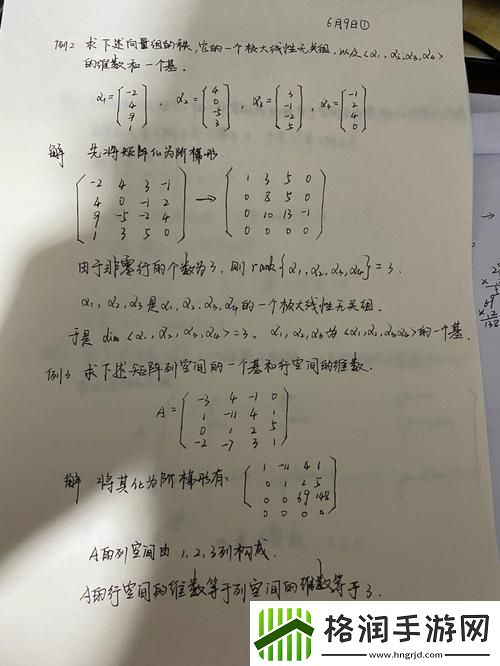 6月9日①
例2 求下述向量组的秩,它的一个极大线性无关组,以及<α₁,α₂,α₃,α₄>
的维数和一个基.
α₁=(-2 4 9 1), α₂=(4 0 -5 3), α₃=(3 -1 -2 5), α₄=(-1 2 4 0)
解 先将矩阵化为阶梯形.
-2 4 3 -1 → 1 3 5 0
4 0 -1 2 0 8 5 0
9 -5 -2 4 0 10 13 -1
1 3 5 0 0 0 0 0
由于非零行的个数为3,则rank{α₁,α₂,α₃,α₄}=3.
α₁,α₂,α₃是α₁,α₂,α₃,α₄的一个极大线性无关组.
于是 dim<α₁,α₂,α₃,α₄>=3, α₁,α₂,α₃为<α₁,α₂,α₃,α₄>的一个基.
例3 求下述矩阵列空间的一个基和行空间的维数.
A=
-3 4 -1 0
1 -11 4 1
0 1 2 5
-2 -7 3 1
解 将其化为阶梯形有
1 -11 4 1
0 1 2 5
0 0 69 148
0 0 0 0
A的列空间由1,2,3列构成.
A的行空间的维数等于列空间的维数等于3.
格润手游网
www.hngrjd.com